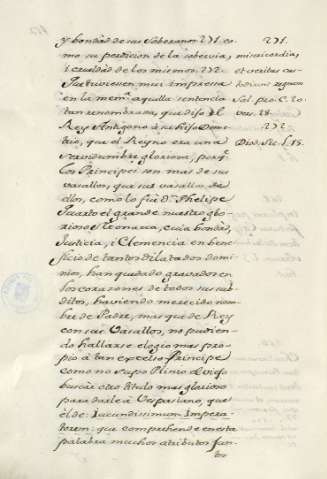 y bondad de sus Soberanos 231. co-
mo su perdicion de la sobervia,
i crueldad de los mismos. 232.
tuvieron mui impresa
en la mem.ª aquella sentencia
tan renombrada, que dijo el
Rey Antigono à su hijo Deme-
trio, que el Reyno era una
servidumbre gloriosa, porq.e
los Principes son mas de sus
vasallos, que sus vasallos de
ellos, como lo fue D.n Phelipe
Quarto el grande nuestro glo-
rioso Monarca, cuia bondad,
Justicia, i Clemencia en bene-
ficio de tantos dilatados domi-
nios, han quedado gravados en
los corazones de todos sus sub-
ditos, haviendo merecido nom-
bre de Padre, mas que de Rey
con sus Vasallos, no pudien-
do hallarse elogio mas pro-
pio à tan excelso Principe
como no supo Plinio el viejo
buscar otro titulo mas glorioso
para darle à Vespasiano, que
el de: Iucundissimum Impera-
torem: que comprehende en esta
palabra muchos atributos jun-
tos
231.
misericordia,
et veritas cus-
todiunt regem
Sal. pro. C. 20.
ver. 28.
232.